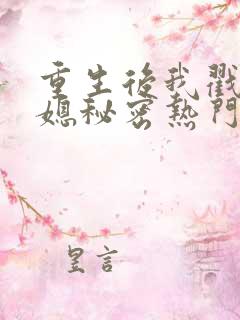 重生後我戳
媳秘密熱門
皇言